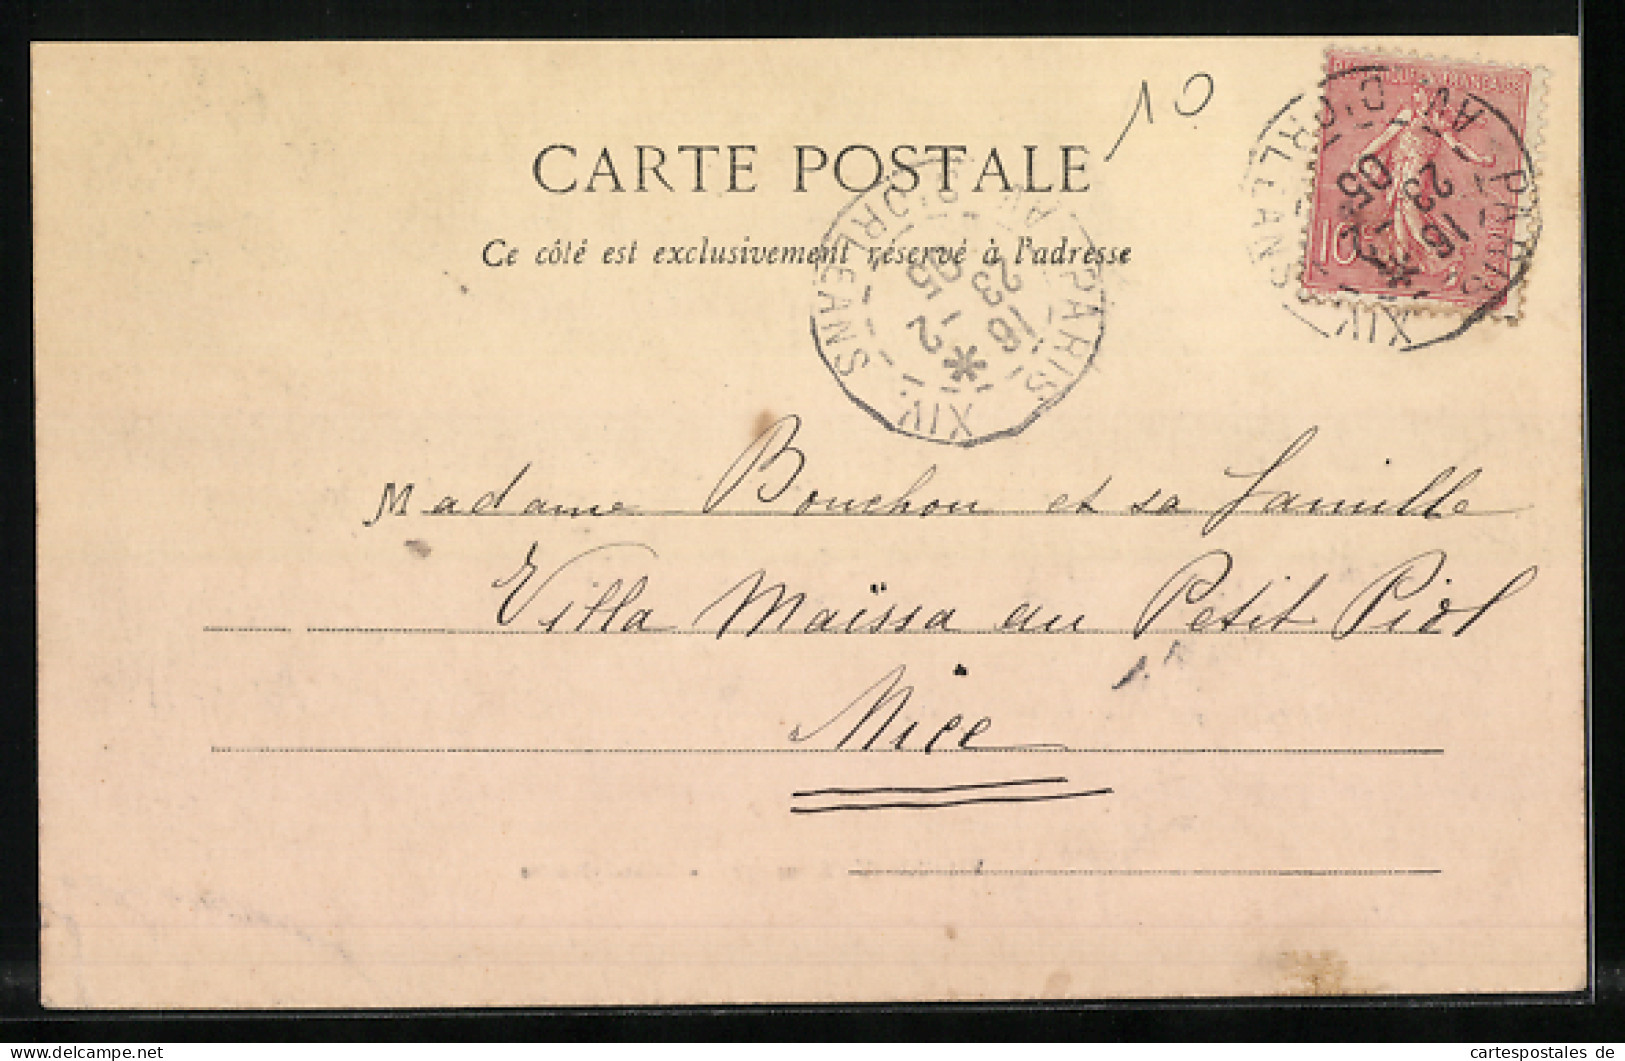 10
CARTE POSTALE
Ce côté est exclusivement réservé à l'adresse
REPUBLIQUE FRANÇAISE
10
PARIS XIV. AV. D'ORLEANS
16 23
2 - 05
PARIS XIV. AV. D'ORLEANS
16 23
2 - 05
Madame Bouchon et sa famille
Villa Maïssa au Petit Piol
Nice
cartespostales de